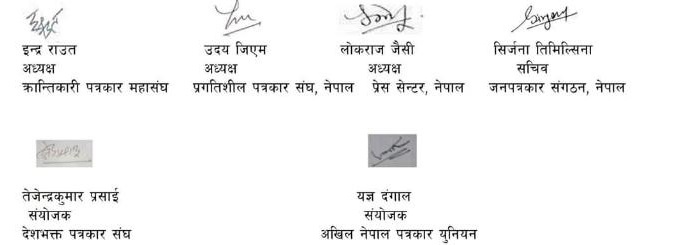 इन्द्र राउत उदय जिएम लोकराज जैसी सिर्जना तिमिल्सिना
अध्यक्ष अध्यक्ष अध्यक्ष सचिव
क्रान्तिकारी पत्रकार महासंघ प्रगतिशील पत्रकार संघ, नेपाल प्रेस सेन्टर, नेपाल जनपत्रकार संगठन, नेपाल
तेजेन्द्रकुमार प्रसाई यज्ञ दंगाल
संयोजक संयोजक
देशभक्त पत्रकार संघ अखिल नेपाल पत्रकार युनियन